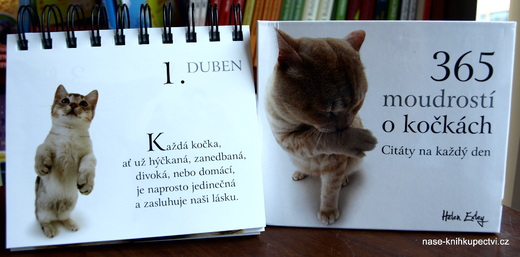 1. DUBEN
Každá kočka,
ať už hýčkaná, zanedbaná,
divoká, nebo domácí,
je naprosto jedinečná
a zasluhuje naši lásku.
365
moudrostí
o kočkách
Citáty na každý den
Helen Exley
nase-knihkupectvi.cz